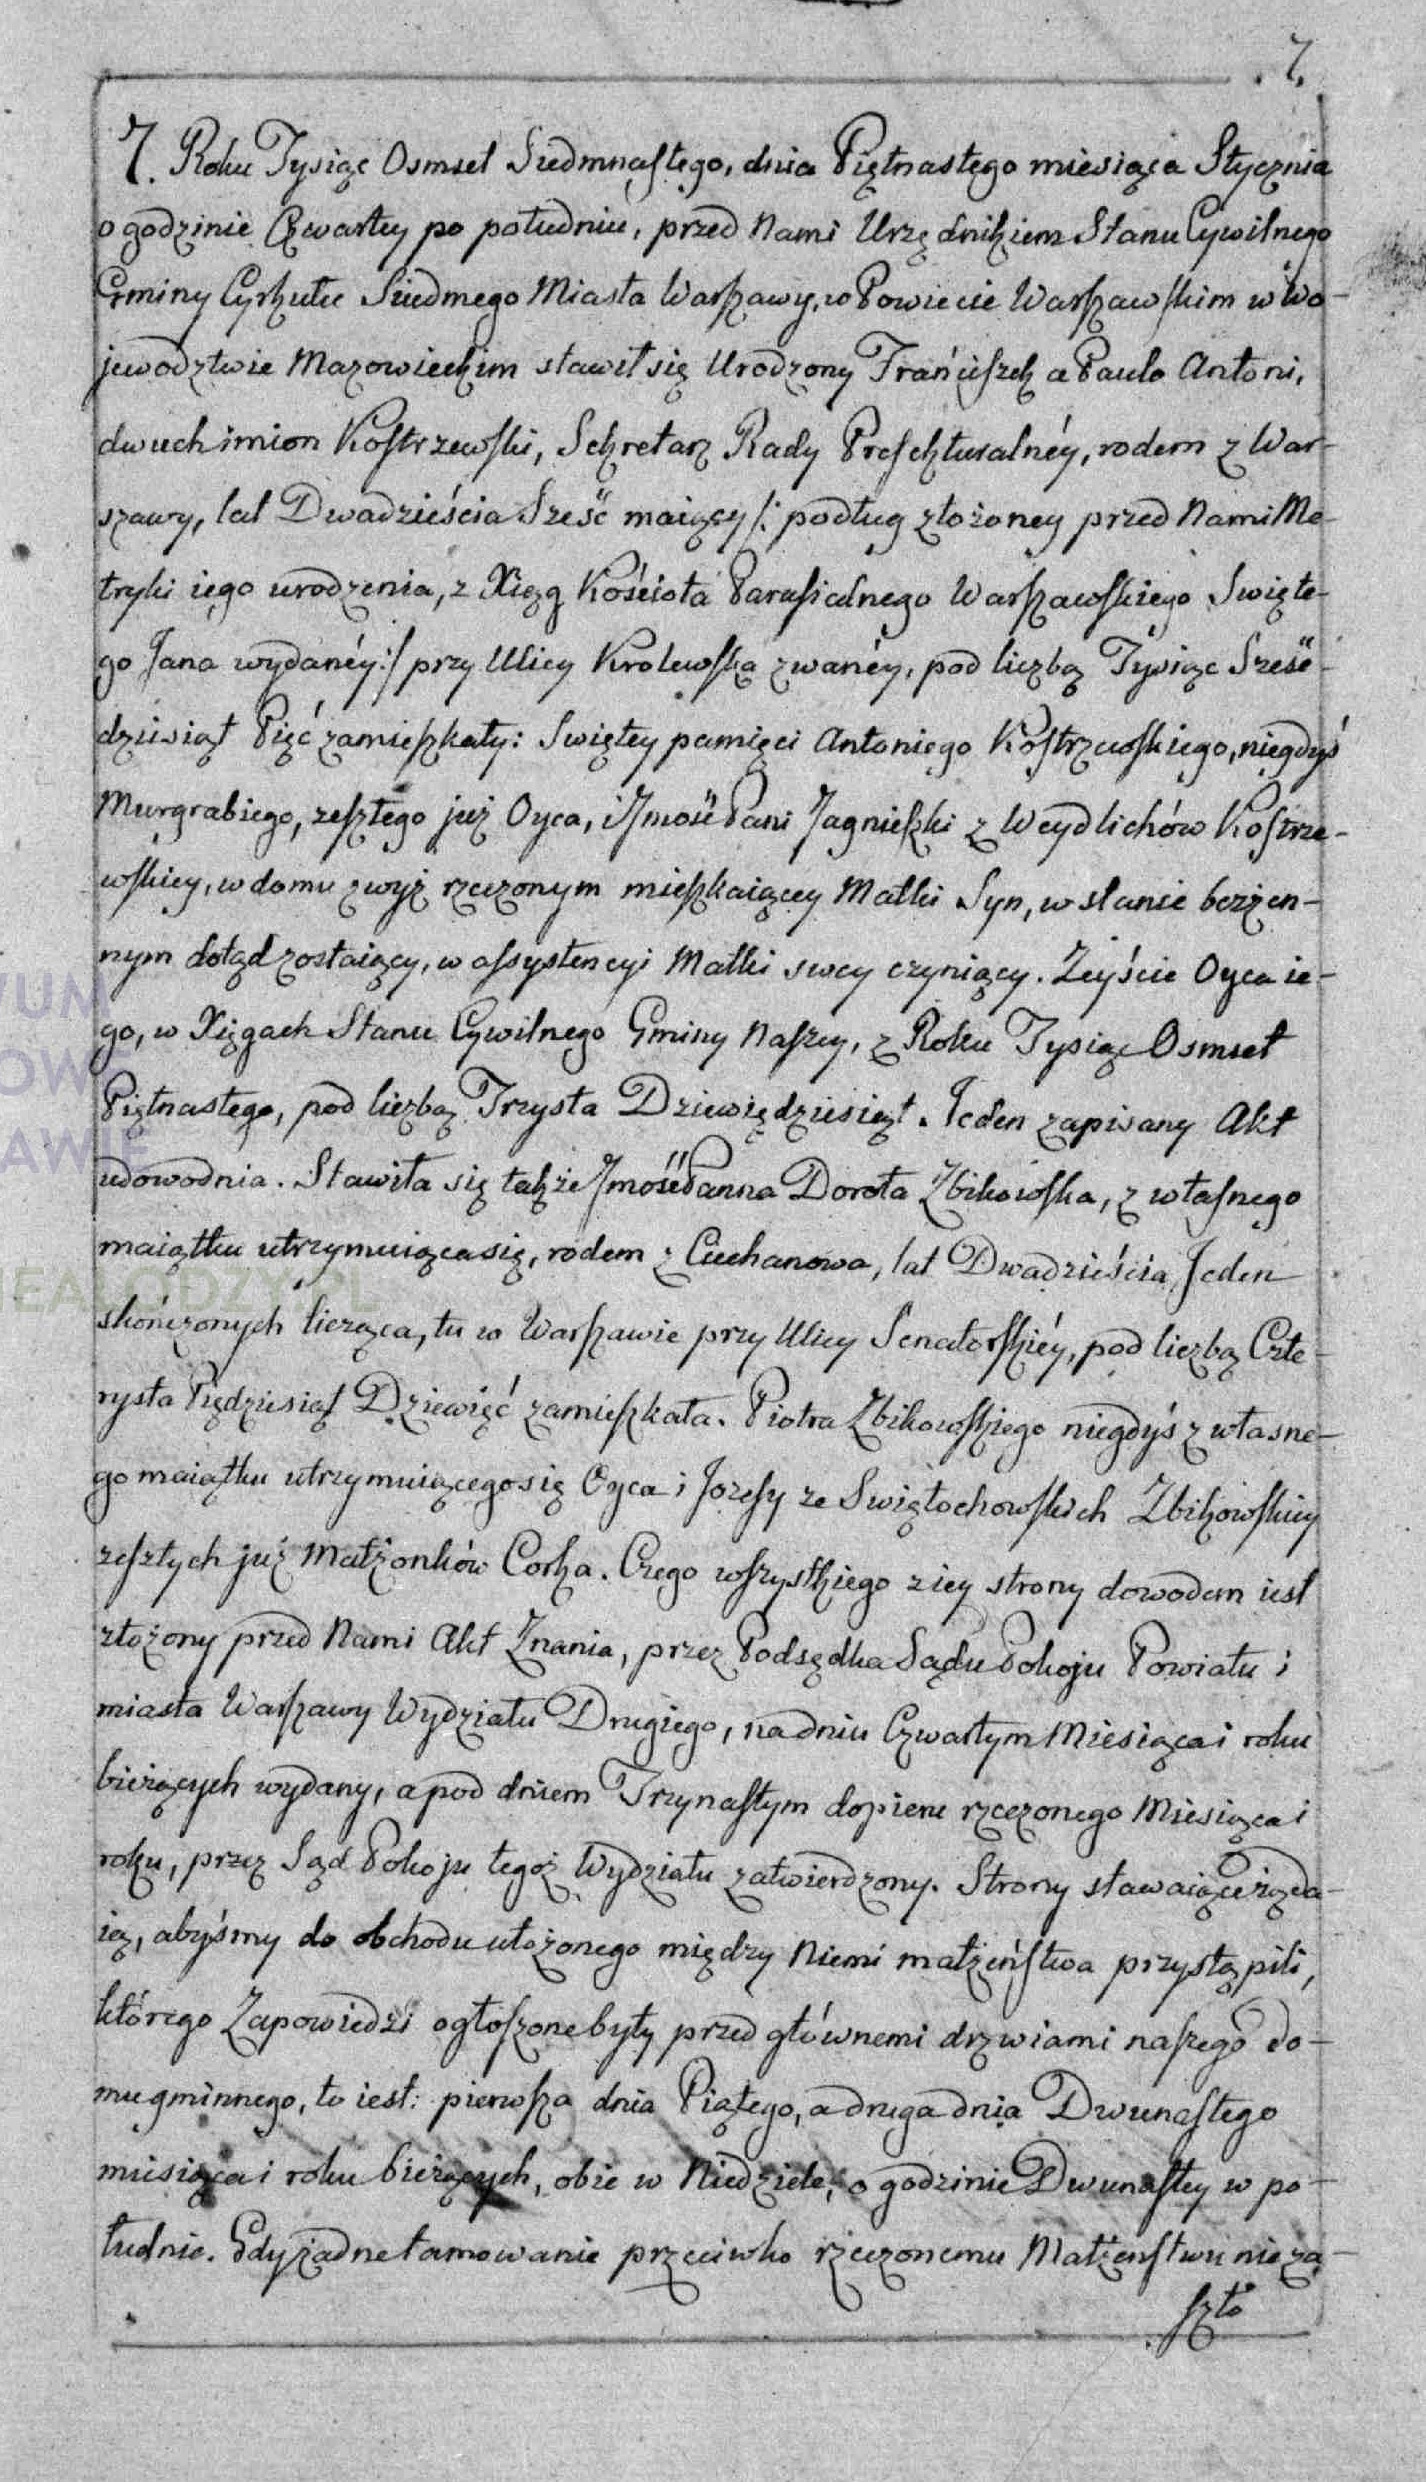 7.
7. Roku Tysiąc Osmset Siedmnastego, dnia Piętnastego miesiąca Stycznia
o godzinie Czwartey po południu, przed Nami Urzędnikiem Stanu Cywilnego
Gminy Cyrkułu Siedmego Miasta Warszawy, w Powiecie Warszawskim w Wo-
jewodztwie Mazowieckim stawił się Urodzony Franciszek a Paulo Antoni,
dwuch imion Kostrzewski, Sekretarz Rady Prefekturalnéy, rodem z War-
szawy, lat Dwadzieścia Sześć maiący /: podług złożoney przed Nami Me-
tryki iego urodzenia, z Xięg Kościoła Parafialnego Warszawskiego Swięte-
go Jana wydanéy :/ przy Ulicy Krolewska zwanéy, pod liczbą Tysiąc Sześć-
dziesiąt Pięć zamieszkały: Swiętey pamięci Antoniego Kostrzewskiego, niegdyś
Murgrabiego, zeszłego już Oyca, i Jmość Pani Jagnieszki z Weydlichów Kostrze-
wskiey, w domu zwyż rzeczonym mieszkaiącey Matki Syn, w stanie bezżen-
nym dotąd zostaiący, w assystencyi Matki swey czyniący. Zeyście Oyca ie-
go, w Xięgach Stanu Cywilnego Gminy Naszey, z Roku Tysiąc Osmset
Piętnastego, pod liczbą Trzysta Dziewiędziesiąt Jeden zapisany Akt
udowodnia. Stawiła się także Jmość Panna Dorota Zbikowska, z własnego
maiątku utrzymuiąca się, rodem z Ciechanowa, lat Dwadzieścia Jeden
skończonych licząca, tu w Warszawie przy Ulicy Senatorskiéy, pod liczbą Czte-
rysta Piędziesiąt Dziewięć zamieszkała. Piotra Zbikowskiego niegdyś z własne-
go maiątku utrzymuiącego się Oyca i Jozefy ze Swiętochowskich Zbikowskiey
zeszłych już Małżonków Corka. Czego wszystkiego z iey strony dowodem iest
złożony przed Nami Akt Znania, przez Podsędka Sądu Pokoju Powiatu i
miasta Warszawy Wydziału Drugiego, na dniu Czwartym Miesiąca i roku
bieżących wydany, a pod dniem Trzynastym dopiero rzeczonego Miesiąca i
roku, przez Sąd Pokoju tegoż Wydziału zatwierdzony. Strony stawaiące żąda-
ią, abyśmy do obchodu ułożonego między Niemi małżeństwa przystąpili,
którego Zapowiedzi ogłoszone były przed głównemi drzwiami naszego do-
mu gminnego, to iest: pierwsza dnia Piątego, a druga dnia Dwunastego
miesiąca i roku bieżących, obie w Niedziele, o godzinie Dwunastey w po-
łudnie. Gdy żadne tamowanie przeciwko rzeczonemu Małżeństwu nie za-
szło